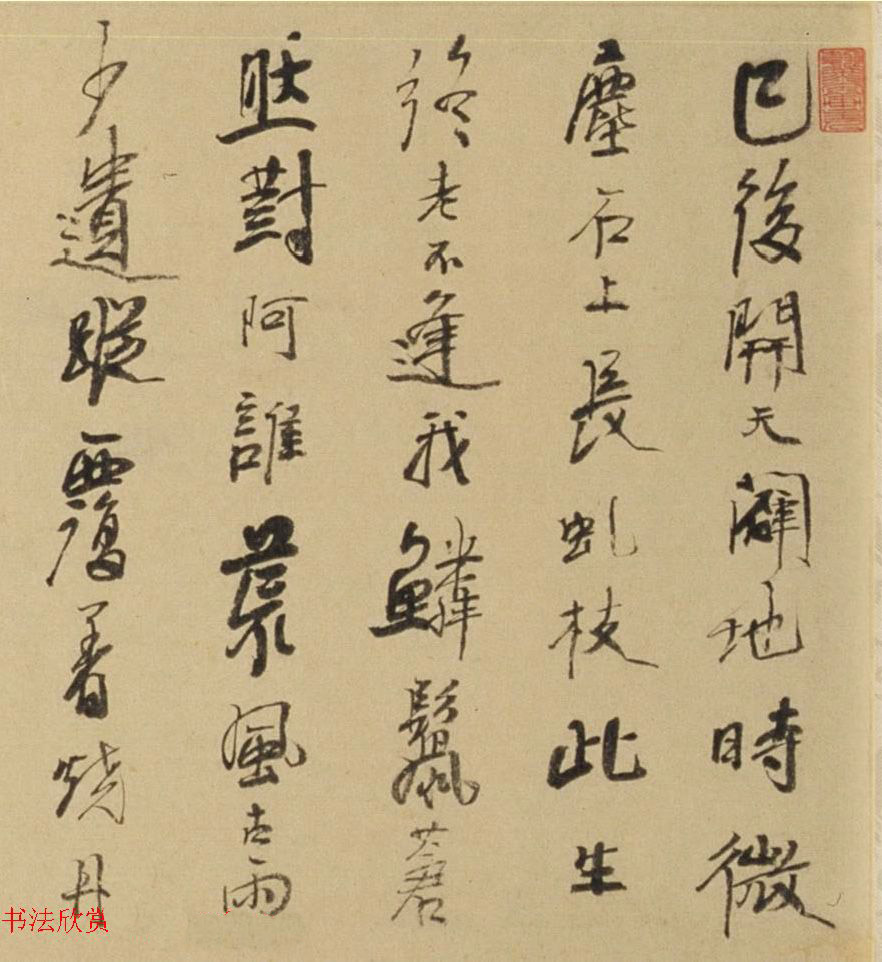 已後開天闢地時微
塵石上長虬枝此生
終老不逢我鱗鬣蒼
然對阿誰荒風古雨
少遺蹤覆著燒丹
书法欣赏